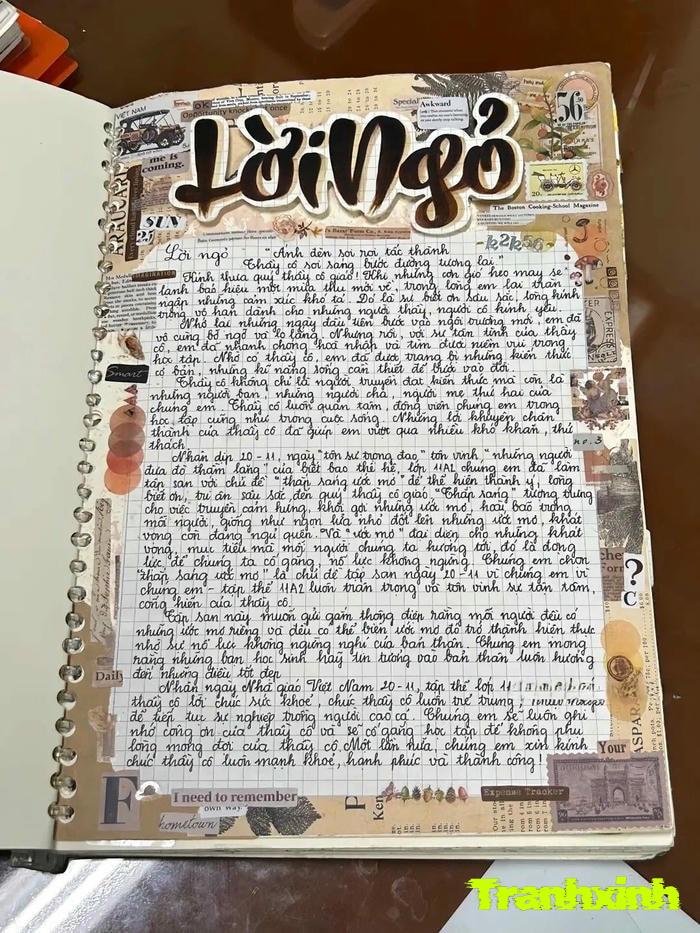 Lời Ngỏ
VIỆT NAM
Opportunity knocks but once
me is
coming.
Special
Awkward
56
20
The Boston Cooking-School Magazine
SUN
25
k2k56
Lời ngỏ "Ánh đèn soi rọi tấc thành
Thầy cô soi sáng bước đường tương lai"
Kính thưa quý thầy cô giáo! Khi những cơn gió heo may se
lạnh báo hiệu một mùa thu mới về, trong lòng em lại tràn
ngập những cảm xúc khó tả. Đó là sự biết ơn sâu sắc, lòng kính
trọng vô hạn dành cho những người thầy, người cô kính yêu.
Nhớ lại những ngày đầu tiên bước vào ngôi trường mới, em đã
vô cùng bỡ ngỡ và lo lắng. Nhưng rồi, với sự tận tình của thầy
cô, em đã nhanh chóng hoà nhập và tìm được niềm vui trong
học tập. Nhờ có thầy cô, em đã được trang bị những kiến thức
cơ bản, những kĩ năng sống cần thiết để bước vào đời.
Thầy cô không chỉ là người truyền đạt kiến thức mà còn là
những người bạn, những người cha, người mẹ thứ hai của
chúng em. Thầy cô luôn quan tâm, động viên chúng em trong
học tập cũng như trong cuộc sống. Những lời khuyên chân
thành của thầy cô đã giúp em vượt qua nhiều khó khăn, thử
thách.
Nhân dịp 20-11, ngày "tôn sư trọng đạo", tôn vinh "những người
đưa đò thầm lặng" của biết bao thế hệ, lớp 11A2 chúng em đã làm
tập san với chủ đề "thắp sáng ước mơ" để thể hiện thành ý, lòng
biết ơn, tri ân sâu sắc đến quý thầy cô giáo. "Thắp sáng" tượng trưng
cho việc truyền cảm hứng, khơi gợi những ước mơ, hoài bão trong
mỗi người, giống như ngọn lửa nhỏ đốt lên những ước mơ, khát
vọng còn đang ngủ quên. Và "ước mơ" đại diện cho những khát
vọng, mục tiêu mà mỗi người chúng ta hướng tới, đó là động
lực để chúng ta cố gắng, nỗ lực không ngừng. Chúng em chọn
"thắp sáng ước mơ" là chủ đề tập san ngày 20-11 vì chúng em vì
chúng em - tập thể 11A2 luôn trân trọng và tôn vinh sự tận tâm,
cống hiến của thầy cô.
Tập san này muốn gửi gắm thông điệp rằng mỗi người đều có
những ước mơ riêng và đều có thể biến ước mơ đó trở thành hiện thực
nhờ sự nỗ lực không ngừng nghỉ của bản thân. Chúng em mong
rằng những bạn học sinh hãy tin tưởng vào bản thân luôn hướng
đến những điều tốt đẹp.
Nhân ngày Nhà giáo Việt Nam 20-11, tập thể lớp 11
thầy cô lời chúc sức khoẻ, chúc thầy cô luôn trẻ trung,
để tiếp tục sự nghiệp trồng người cao cả. Chúng em sẽ luôn ghi
nhớ công ơn của thầy cô và sẽ cố gắng học tập để không phụ
lòng mong đợi của thầy cô. Một lần nữa, chúng em xin kính
chúc thầy cô luôn mạnh khoẻ, hạnh phúc và thành công!
IMAGINATION
Smart
no.3
?
Daily
Your
F
I need to remember
own way.
hometown
Ken
Expense Tracker
Tranhxinh